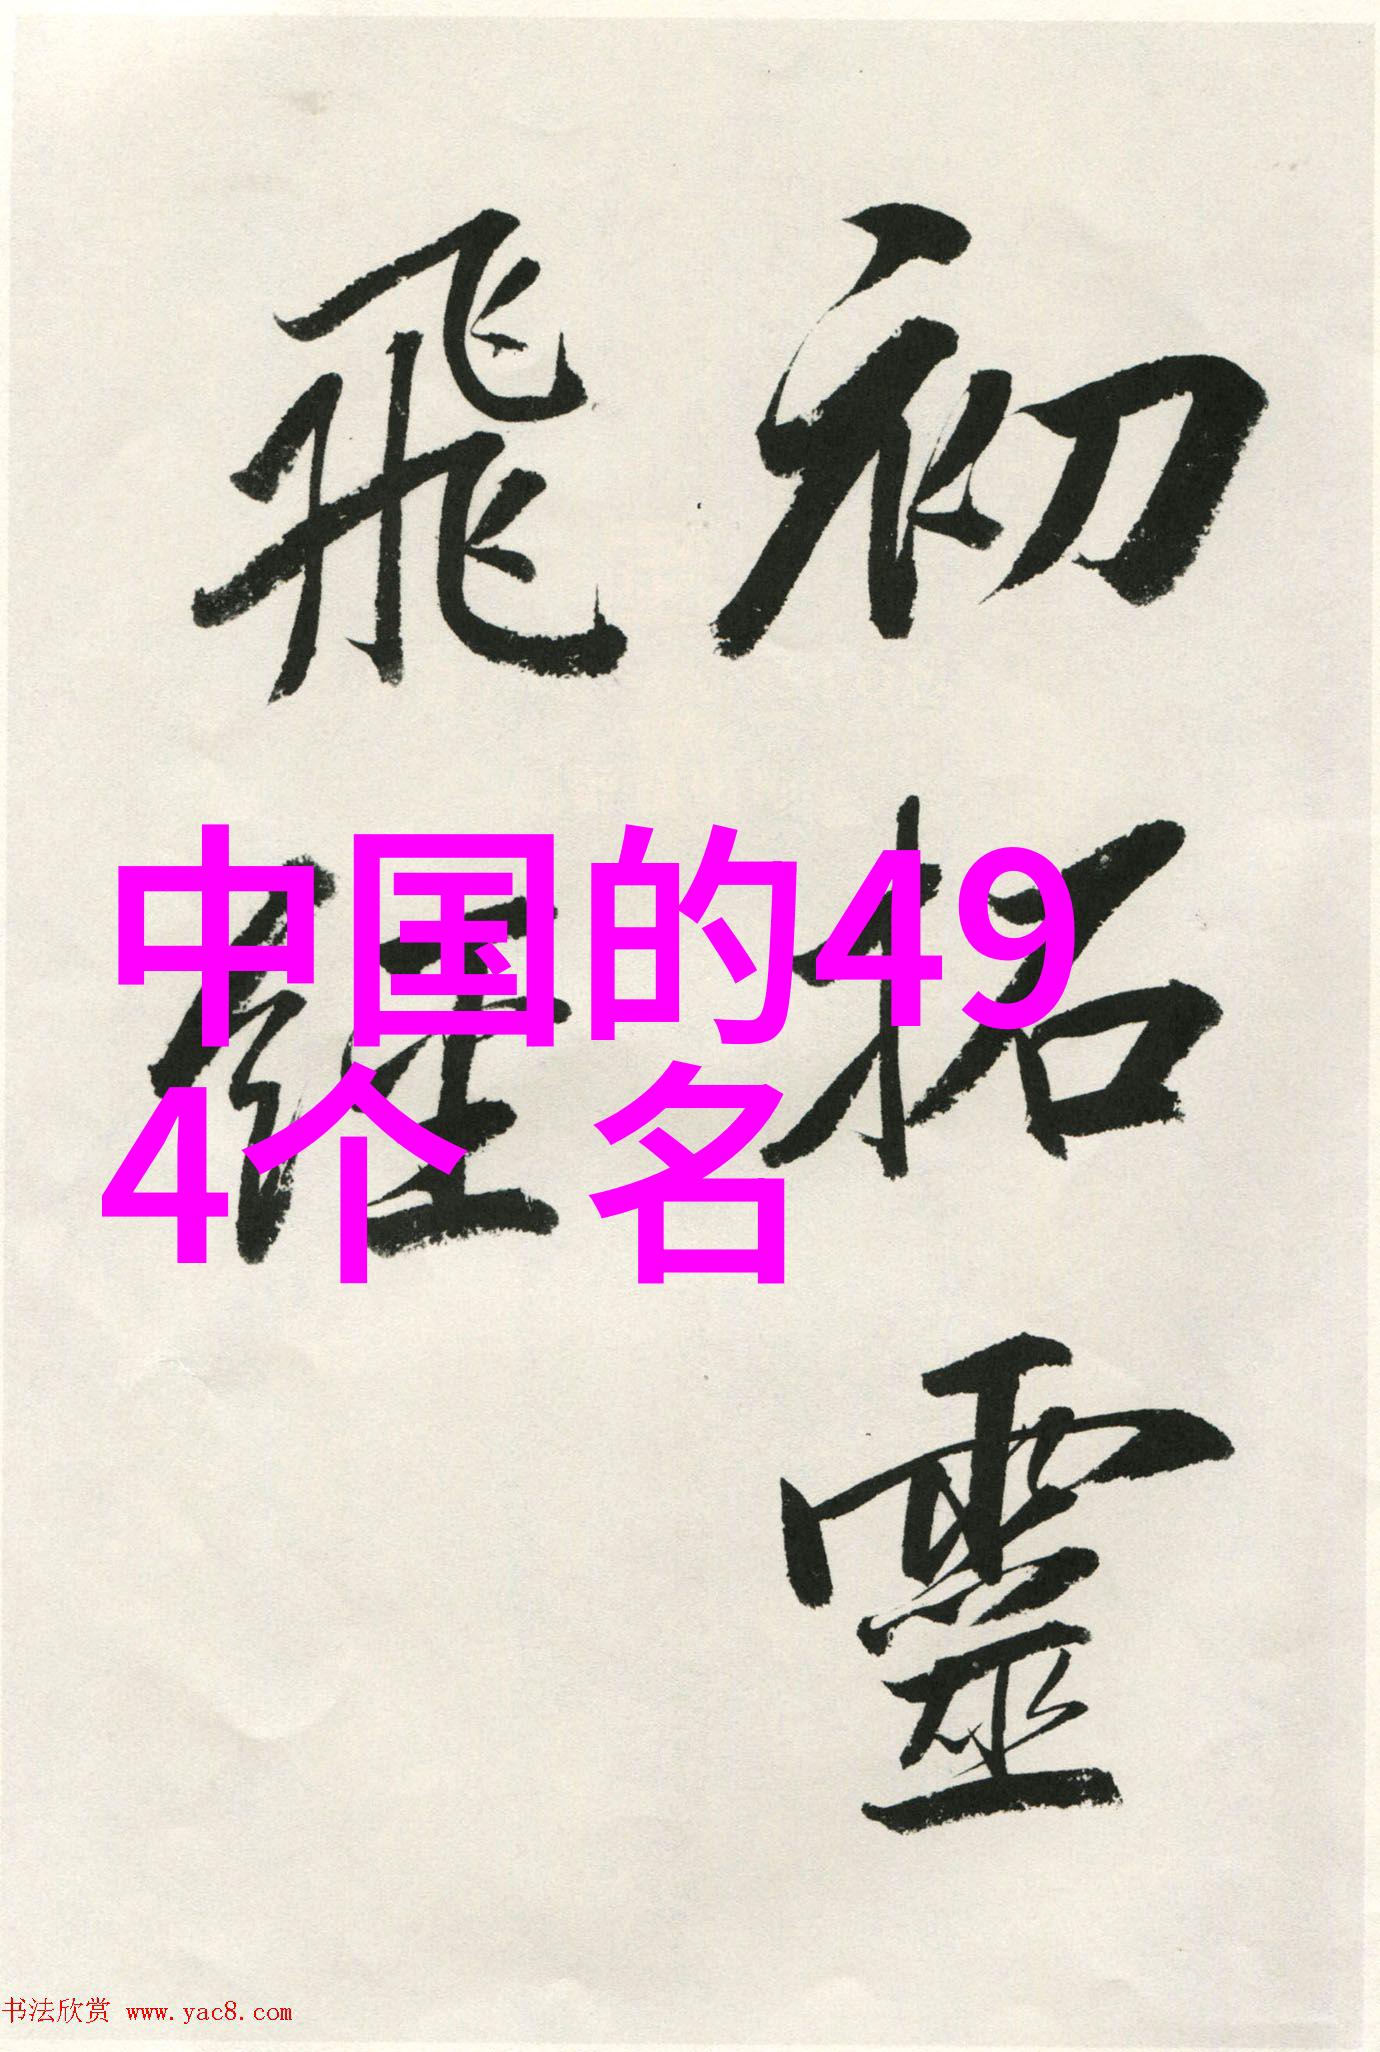 初拓靈
飛經
中国的49
4个 名
书法欣赏 www.yac8.com